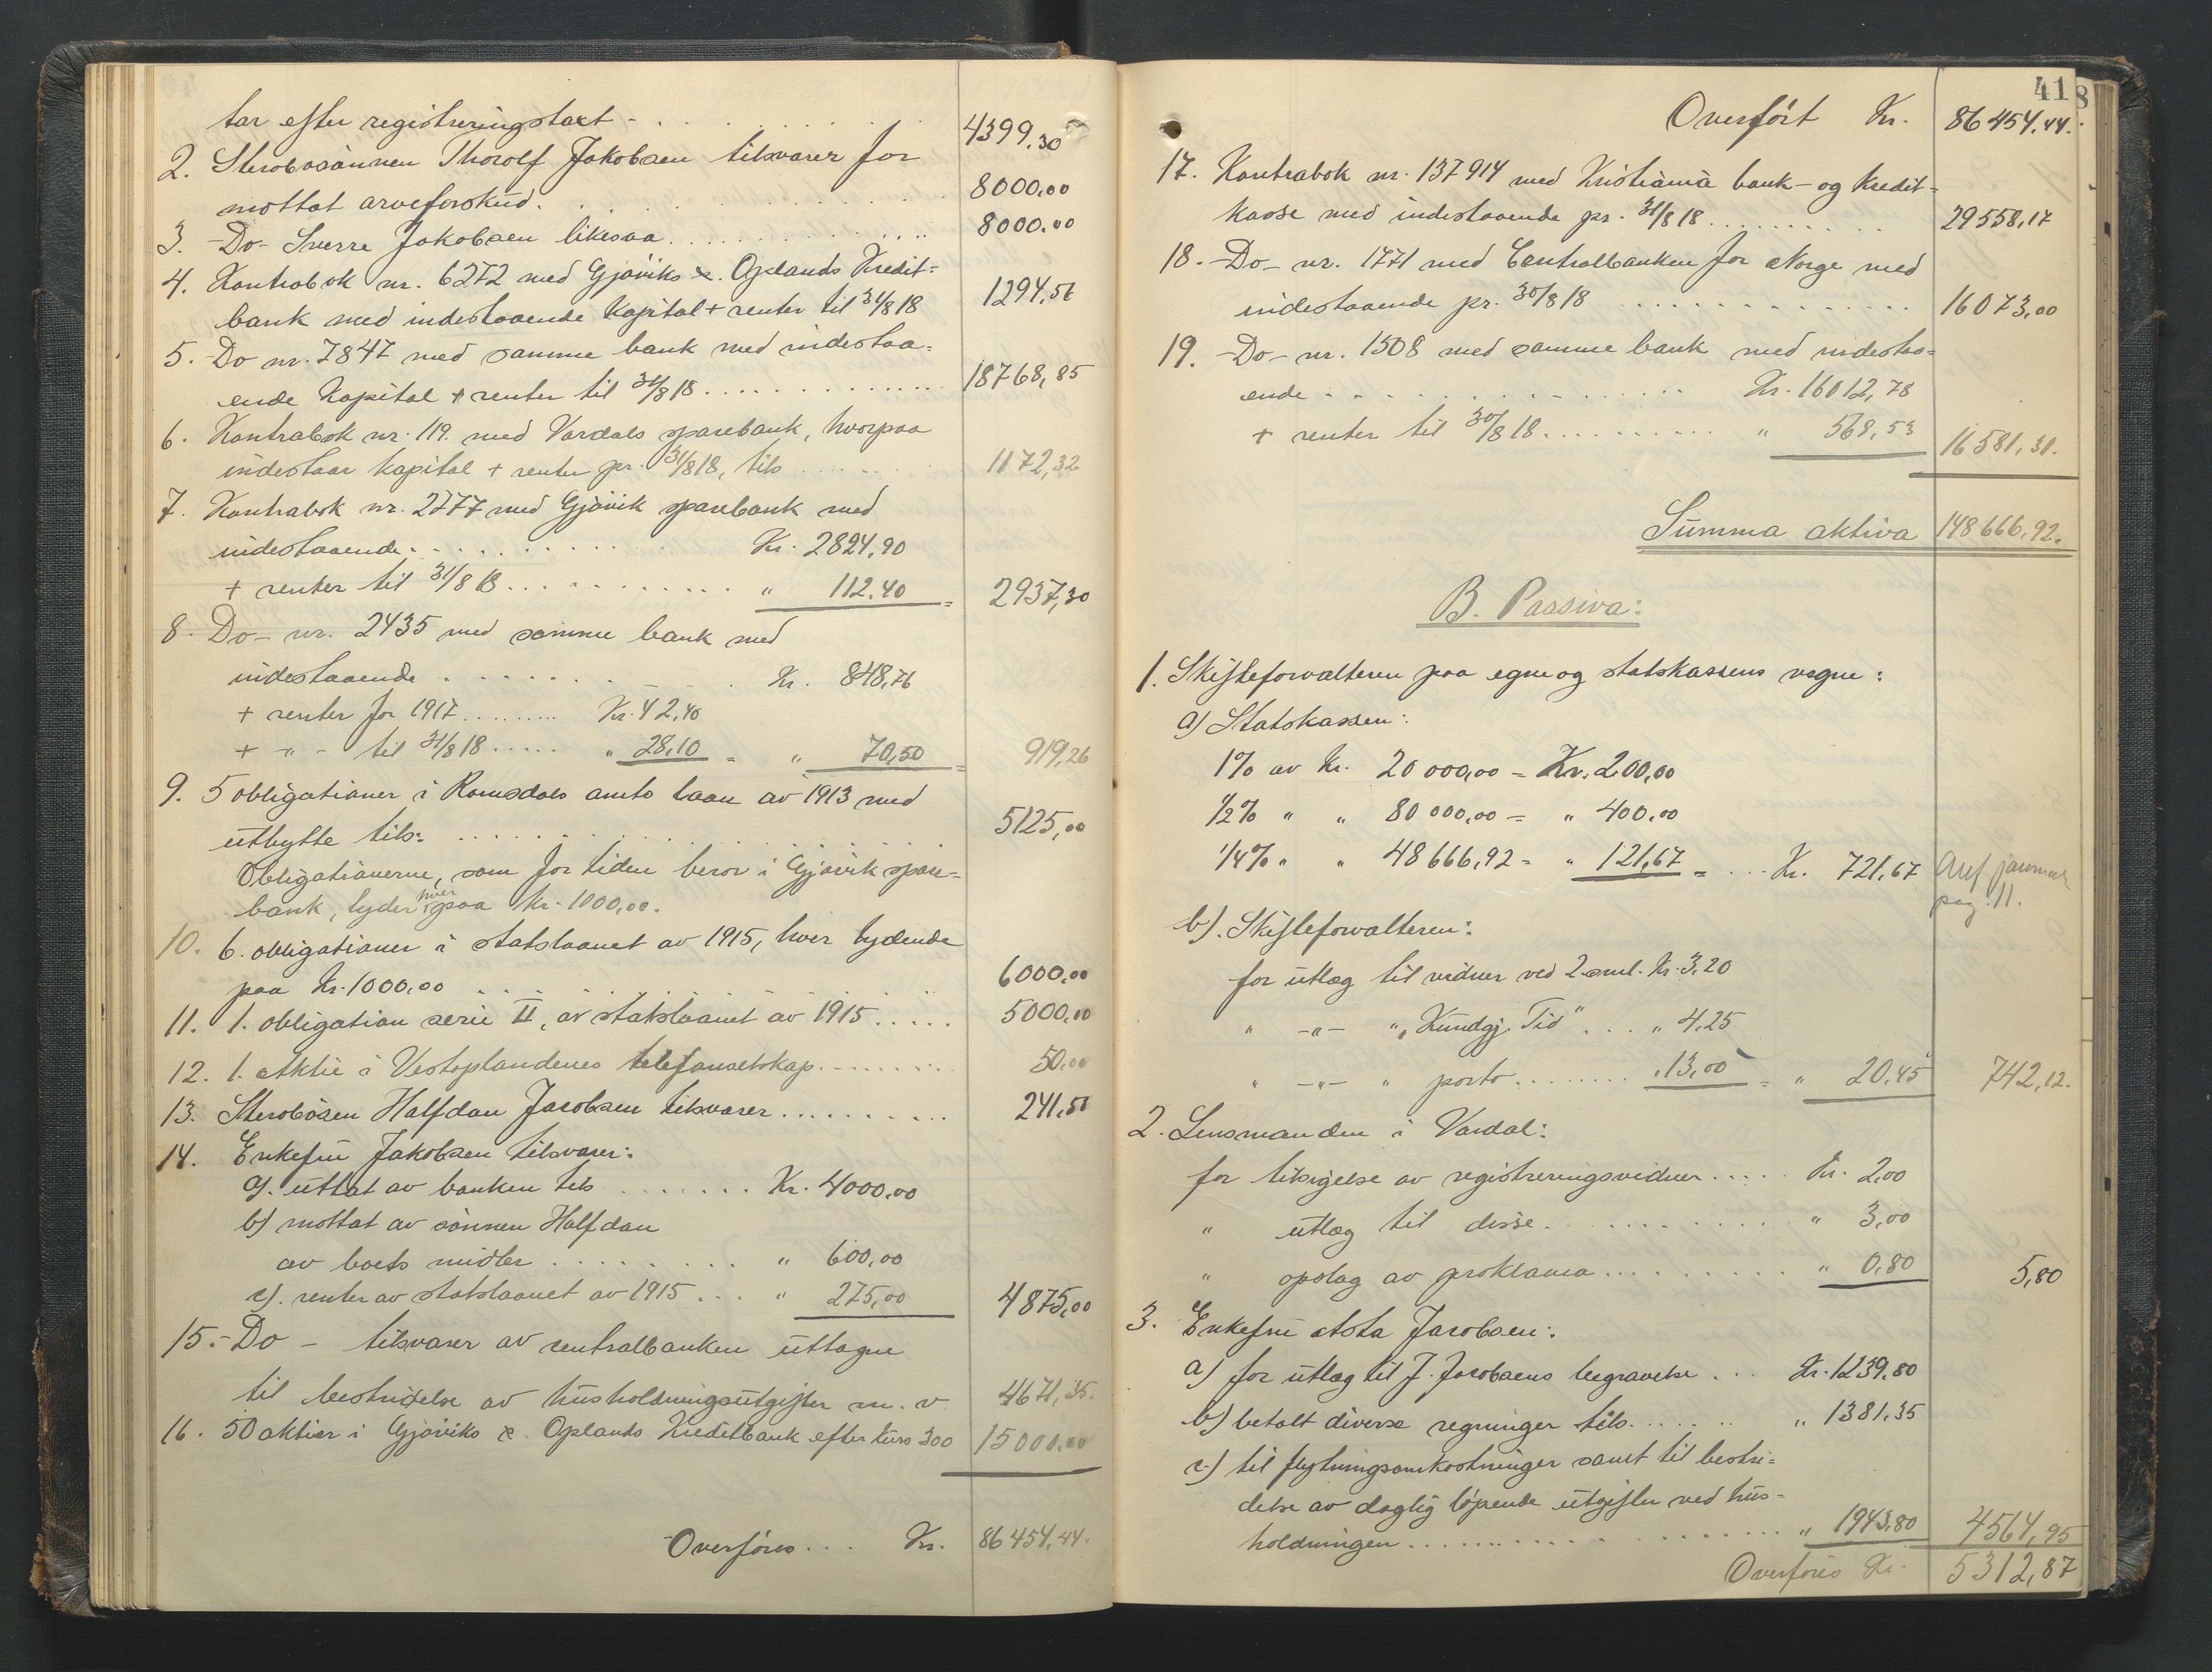 tar efter registreringstakt - . . . . . . 4399.30
2. Sterbosönnen Thorolf Jakobsen tilsvarer for
mottat arveforskud. . . . . . 8000,00
3. -Do- Sverre Jakobsen likesaa . . . . . . 8000.00
4. Kontrabok nr. 6272 med Gjøviks & Oplands Kredit=
bank med indestaaende kapital + renter til 31/8 18 1294,56
5. Do nr. 7847 med samme bank med indestaa=
ende Kapital + renter til 31/8 18 . . . . . . 18768,85
6. Kontrabok nr. 119. med Vardals sparebank, hvorpaa
indestaar kapital + renter pr. 31/8 18, tils . . . . 1172,32
7. Kontrabok nr. 2777 med Gjøvik sparebank med
indestaaende . . . . . . Kr. 2824,90
+ renter til 31/8 18 . . . . . . " 112.40 = 2937,30
8. Do- nr. 2435 med samme bank med
indestaaende . . . . . . Kr. 848,76
+ renter for 1917 . . . . Kr. 42,40
+ -"- til 31/8 18 . . . . " 28,10 = " 70,50 = 919,26
9. 5 obligationer i Romsdals amts laan av 1913 med
utbytte tils: . . . . . . 5125,00
Obligationerne, som for tiden beror i Gjøvik spare=
bank, lyder hver paa kr. 1000,00.
10. 6. obligationer i statslaanet av 1915, hver lydende
paa Kr. 1000,00 . . . . . . 6000,00
11. 1. obligation serie II, av statslaanet av 1915 . . . . . 5000,00
12. 1. aktie i Vestoplandenes telefonselskap . . . . . 50,00
13. Sterbosøn Halfdan Jacobsen tilsvarer . . . . . . 241,50
14. Enkefru Jakobsen tilsvarer:
a). uttat av banken tils . . . . . . Kr. 4000,00
b) mottat av sønnen Halfdan
av boets midler . . . . . . " 600,00
c). renter av statslaanet av 1915 . . . " 275,00 4875,00
15. -Do- tilsvarer av centralbanken uttagne
til bestridelse av husholdningsutgifter m. v. 4671,35.
16. 50 aktier i Gjøviks & Oplands Kreditbank efter kurs 300 15000,00
Overføres . . . Kr. 86454,44.
41
Overført Kr. 86454,44.
17. Kontrabok nr. 137914 med Kristiania bank- og Kredit=
kasse med indestaaende pr. 31/8 18 . . . . . . 29558,17
18. -Do- nr. 1771 med Centralbanken for Norge med
indestaaende pr. 30/8 18 . . . . . . 16073,00
19. -Do- nr. 1508 med samme bank med indestaa=
ende . . . . . . Kr. 16012,78
+ renter til 30/8 18 . . . . . . " 568,53 16581,31.
Summa aktiva 148666,92.
B. Passiva:
1. Skifteforvalteren paa egne og statskassens vegne:
a) Statskassen:
1% av Kr. 20 000,00 = Kr. 200,00
1/2% " " 80 000,00 = " 400,00
1/4% " " 48 666,92 = " 121,67 = . . . Kr. 721,67
pag. 11.
b). Skifteforvalteren:
for utlæg til vidner ved 2 saml. Kr. 3,20
" -"- " "Kundgj. Tid" . . . " 4,25
" -"- " porto . . . . . . " 13,00 = " 20,45 742,12.
2. Lensmanden i Vardal:
for tilsigelse av registreringsvidner . . . . . Kr. 2,00
" utlæg til disse . . . . . . " 3,00
" opslag av proklama . . . . . . " 0,80 5,80
3. Enkefru Asta Jacobsen:
a) for utlæg til J. Jacobsens begravelse . . . Kr. 1239.80
b) betalt diverse regninger tils . . . . . . " 1381,35
c) til flytningsomkostninger samt til bestri=
delse av daglig løpende utgifter ved hus-
holdningen . . . . . . " 1943,80 4564,95
Overføres Kr. 5312,87